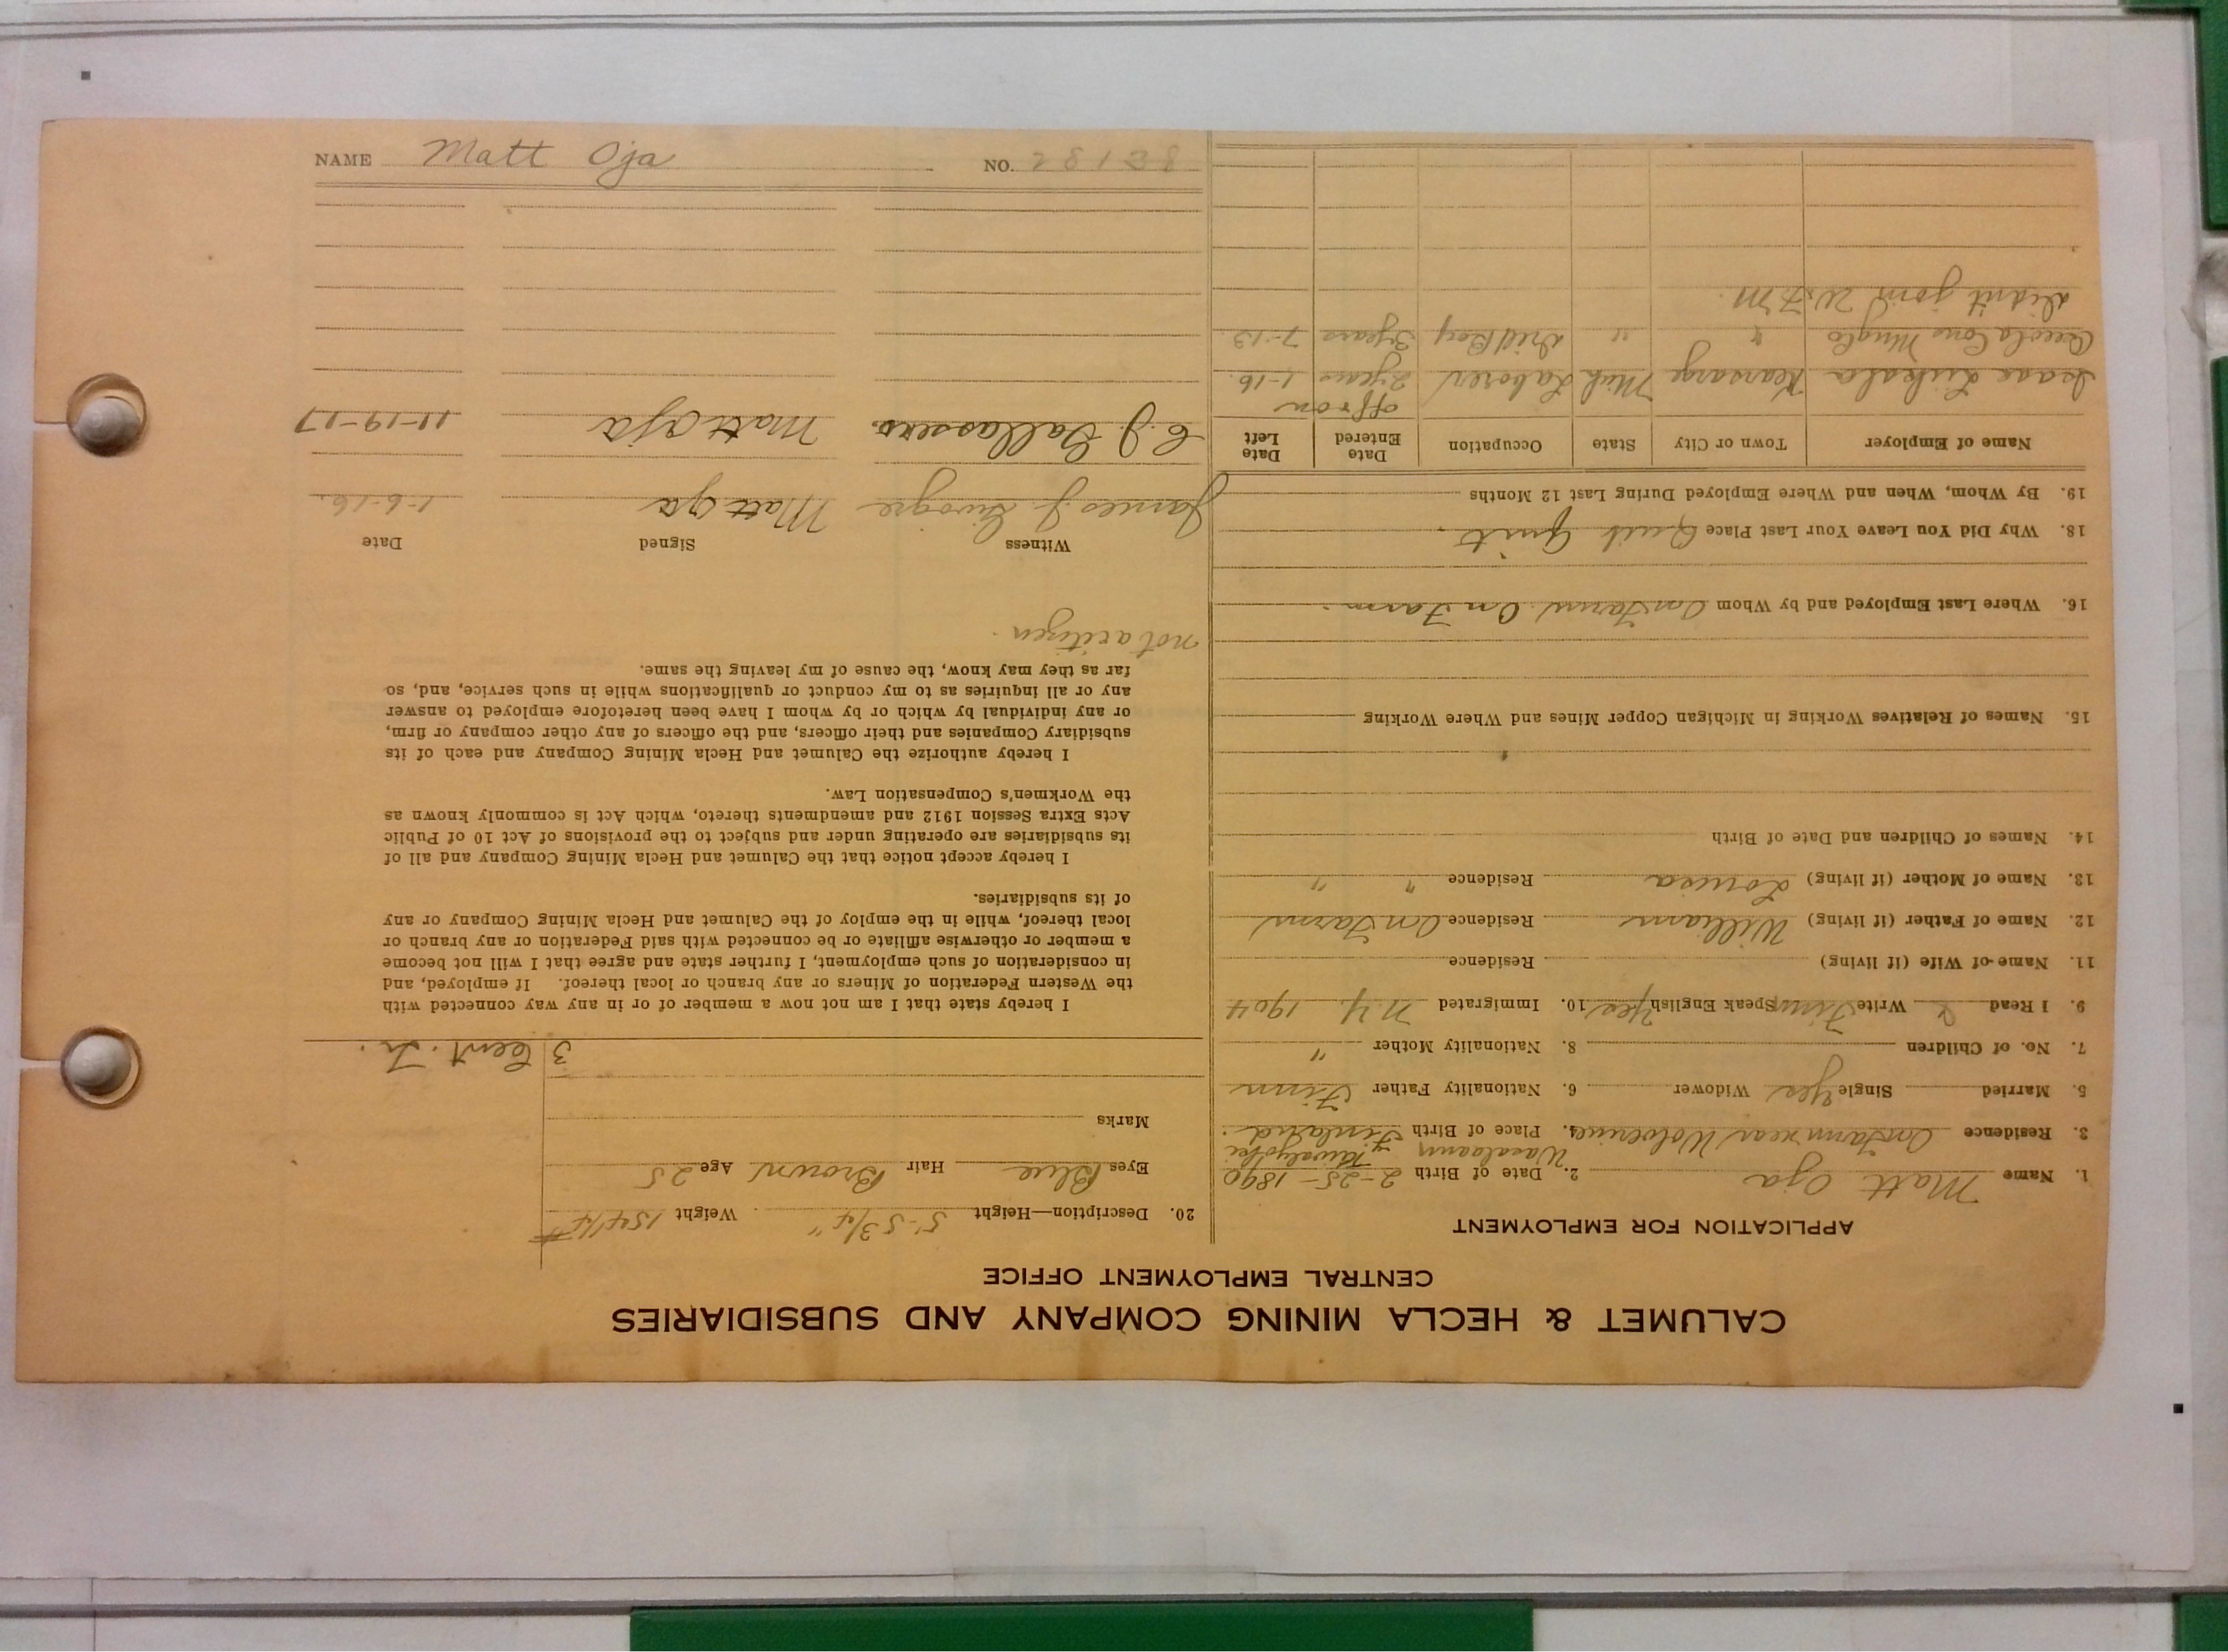 CALUMET & HECLA MINING COMPANY AND SUBSIDIARIES
CENTRAL EMPLOYMENT OFFICE
APPLICATION FOR EMPLOYMENT
1. Name Matt Oja 2. Date of Birth 2-25-1890
3. Residence On Farm near Wolverine 4. Place of Birth Finland.
5. Married Single Yes Widower 6. Nationality Father Finn
7. No. of Children 8. Nationality Mother "
9. I Read Write Finn Speak English Yes 10. Immigrated N.Y. 1904
11. Name of Wife (if living) Residence
12. Name of Father (if living) William Residence On Farm
13. Name of Mother (if living) Louisa Residence " "
14. Names of Children and Date of Birth
15. Names of Relatives Working in Michigan Copper Mines and Where Working
16. Where Last Employed and by Whom On Farm On Farm.
18. Why Did You Leave Your Last Place Quit Quit.
19. By Whom, When and Where Employed During Last 12 Months
Name of Employer Town or City State Occupation Date Entered Date Left
off & on
Isaac Kearsarge Mich Laborer 2 years 1-16.
Osceola Cons Mng Co " " Drill Boy 3 years 7-13
didn't join W.F.M.
20. Description—Height 5'-5 3/4" Weight 154 1/4 #
Eyes Blue Hair Brown Age 25
Marks
3 Cent. Fr.
I hereby state that I am not now a member of or in any way connected with
the Western Federation of Miners or any branch or local thereof. If employed, and
in consideration of such employment, I further state and agree that I will not become
a member or otherwise affiliate or be connected with said Federation or any branch or
local thereof, while in the employ of the Calumet and Hecla Mining Company or any
of its subsidiaries.
I hereby accept notice that the Calumet and Hecla Mining Company and all of
its subsidiaries are operating under and subject to the provisions of Act 10 of Public
Acts Extra Session 1912 and amendments thereto, which Act is commonly known as
the Workmen's Compensation Law.
I hereby authorize the Calumet and Hecla Mining Company and each of its
subsidiary Companies and their officers, and the officers of any other company or firm,
or any individual by which or by whom I have been heretofore employed to answer
any or all inquiries as to my conduct or qualifications while in such service, and, so
far as they may know, the cause of my leaving the same.
not a citizen.
Witness Signed Date
James J. Matt Oja 1-6-16.
C. J. Matt Oja 11-19-17
NAME Matt Oja NO. 28138